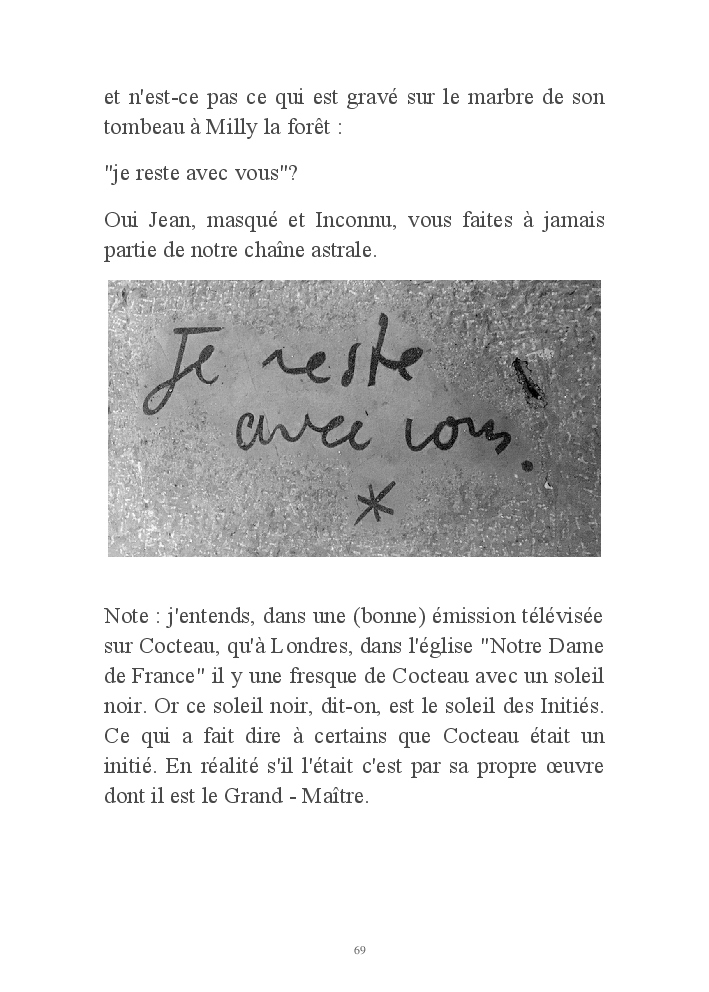 et n'est-ce pas ce qui est gravé sur le marbre de son
tombeau à Milly la forêt :
"je reste avec vous"?
Oui Jean, masqué et Inconnu, vous faites à jamais
partie de notre chaîne astrale.
Je reste
avec vous.
*
Note : j'entends, dans une (bonne) émission télévisée
sur Cocteau, qu'à Londres, dans l'église "Notre Dame
de France" il y une fresque de Cocteau avec un soleil
noir. Or ce soleil noir, dit-on, est le soleil des Initiés.
Ce qui a fait dire à certains que Cocteau était un
initié. En réalité s'il l'était c'est par sa propre œuvre
dont il est le Grand - Maître.
69